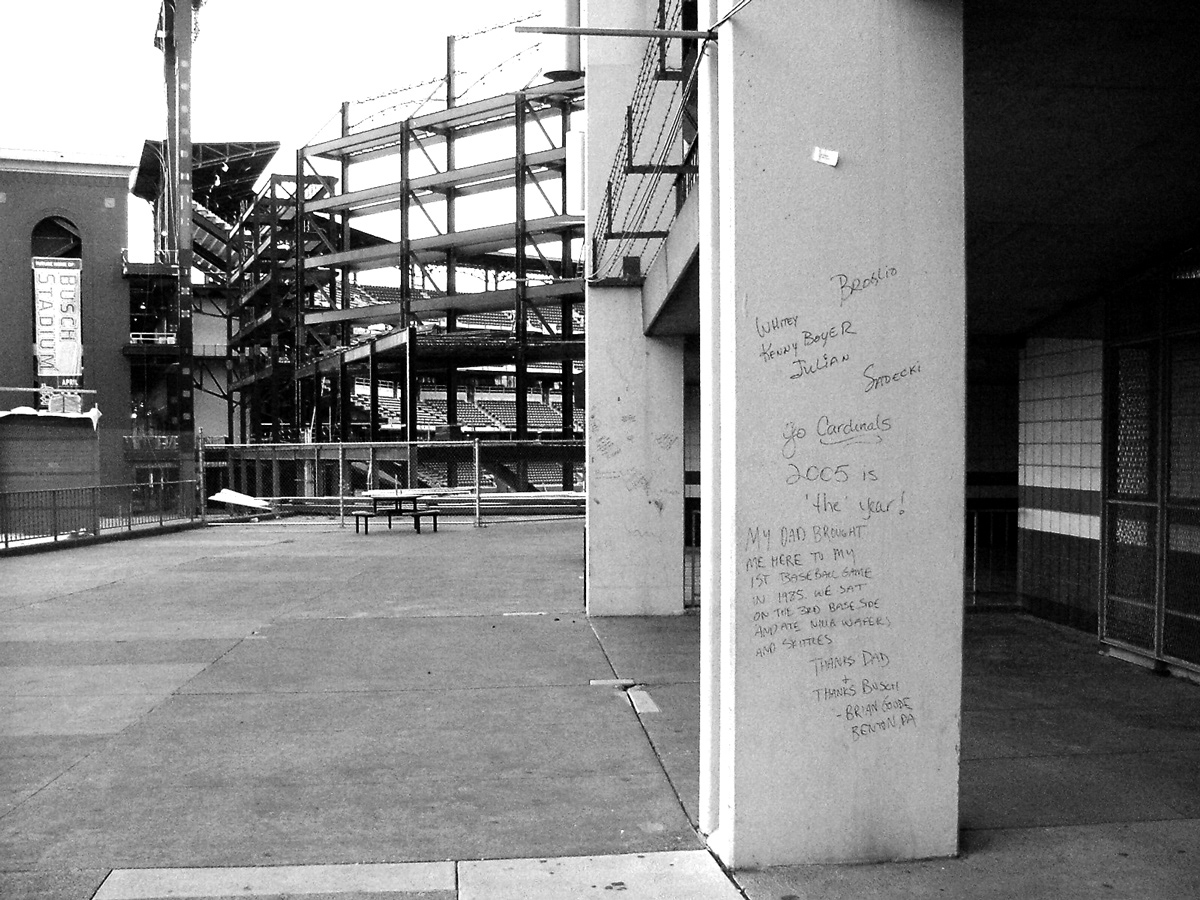 BUSCH
STADIUM
APRIL
BROGLIO
WHITEY
KENNY BOYER
JULIAN
SADECKI
Go Cardinals
2005 is
'the' year!
MY DAD BROUGHT
ME HERE TO MY
1ST BASEBALL GAME
IN 1985. WE SAT
ON THE 3RD BASE SIDE
AND ATE NILLA WAFERS
AND SKITTLES
THANKS DAD
+
THANKS BUSCH
- BRIAN GOODE
BENTON, PA